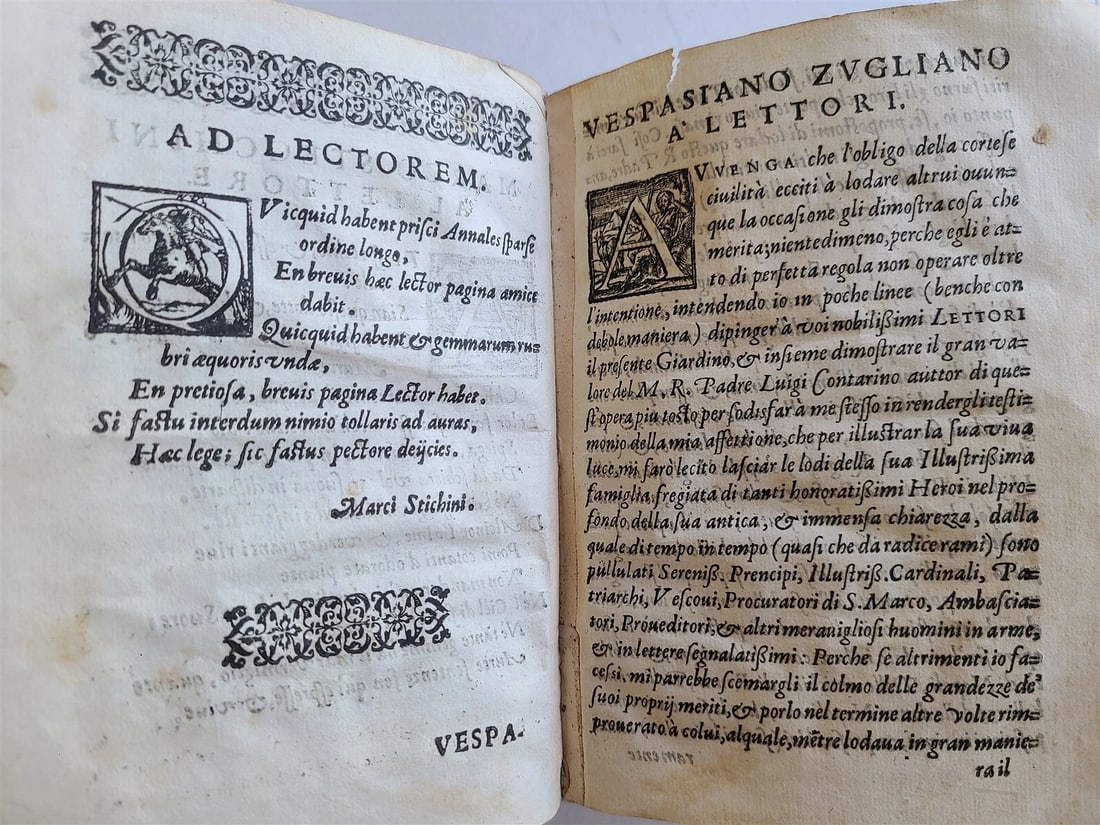 AD LECTOREM.
QVicquid habent prisci Annales sparse
ordine longo,
En brevis hæc lector pagina amice
dabit.
Quicquid habent & gemmarum ru=
bri æquoris vndæ,
En pretiosa, brevis pagina Lector habet.
Si fastu interdum nimio tollaris ad auras,
Hæc lege; sic fastus pectore deijcies.
Marci Stichini.
VESPA-
VESPASIANO ZVGLIANO
A' LETTORI.
AVVENGA che l'obligo della cortese
ciuilità ecciti à lodare altrui ouun=
que la occasione gli dimostra cosa che
merita; nientedimeno, perche egli è at=
to di perfetta regola non operare oltre
l'intentione, intendendo io in poche linee (benche con
debole maniera) dipinger à voi nobilißimi LETTORI
il presente Giardino, & insieme dimostrare il gran va=
lore del M. R. Padre Luigi Contarino auttor di que=
st'opera piu tosto per sodisfar à me stesso in rendergli testi=
monio della mia affettione, che per illustrar la sua viua
luce, mi farò lecito lasciar le lodi della sua Illustrißima
famiglia, fregiata di tanti honoratißimi Heroi nel pro=
fondo della sua antica, & immensa chiarezza, dalla
quale di tempo in tempo (quasi che da radice rami) sono
pullulati Sereniß. Prencipi, Illustriß. Cardinali, Pa=
triarchi, Vescoui, Procuratori di S. Marco, Ambascia=
tori, Proueditori, & altri merauigliosi huomini in arme,
& in lettere segnalatißimi: Perche se altrimenti io fa=
cessi, mi parrebbe scemargli il colmo delle grandezze de'
suoi proprij meriti, & porlo nel termine altre volte rim=
prouerato à colui, alquale, mẽtre lodaua in gran manie=
ra il